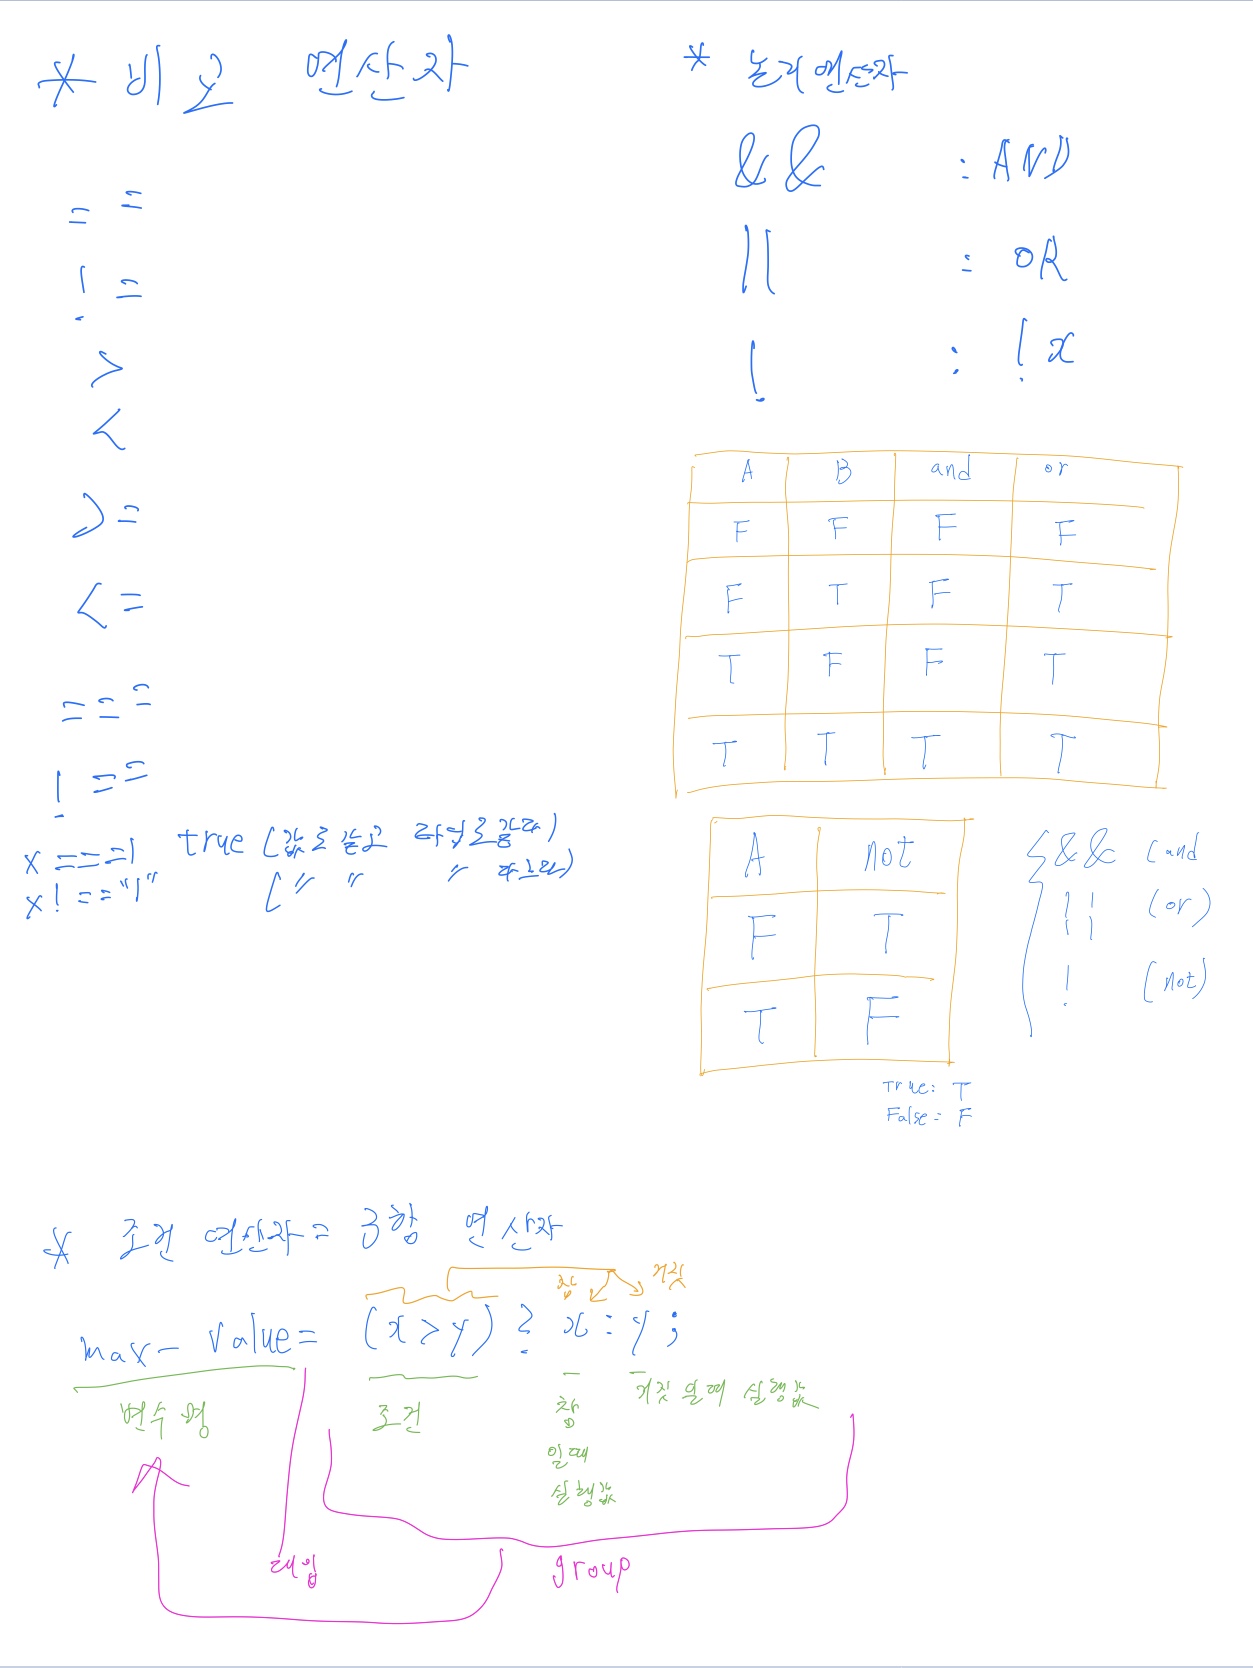 * 비교 연산자
= =
! =
>
<
>=
<=
===
! ==
x ===1 true (값도 같고 타입도 같다)
x ! =="1" (〃 〃 〃 다르다)
* 논리연산자
&& : AND
|| : OR
! : !x
A B and or
F F F F
F T F T
T F F T
T T T T
A not
F T
T F
True: T
False= F
&& (and
|| (or)
! (not)
* 조건 연산자= 3항 연산자
참 거짓
max_ value= (x>y) ? x : y ;
변수명 조건 참 거짓 일때 실행값
일때
실행값
대입 group